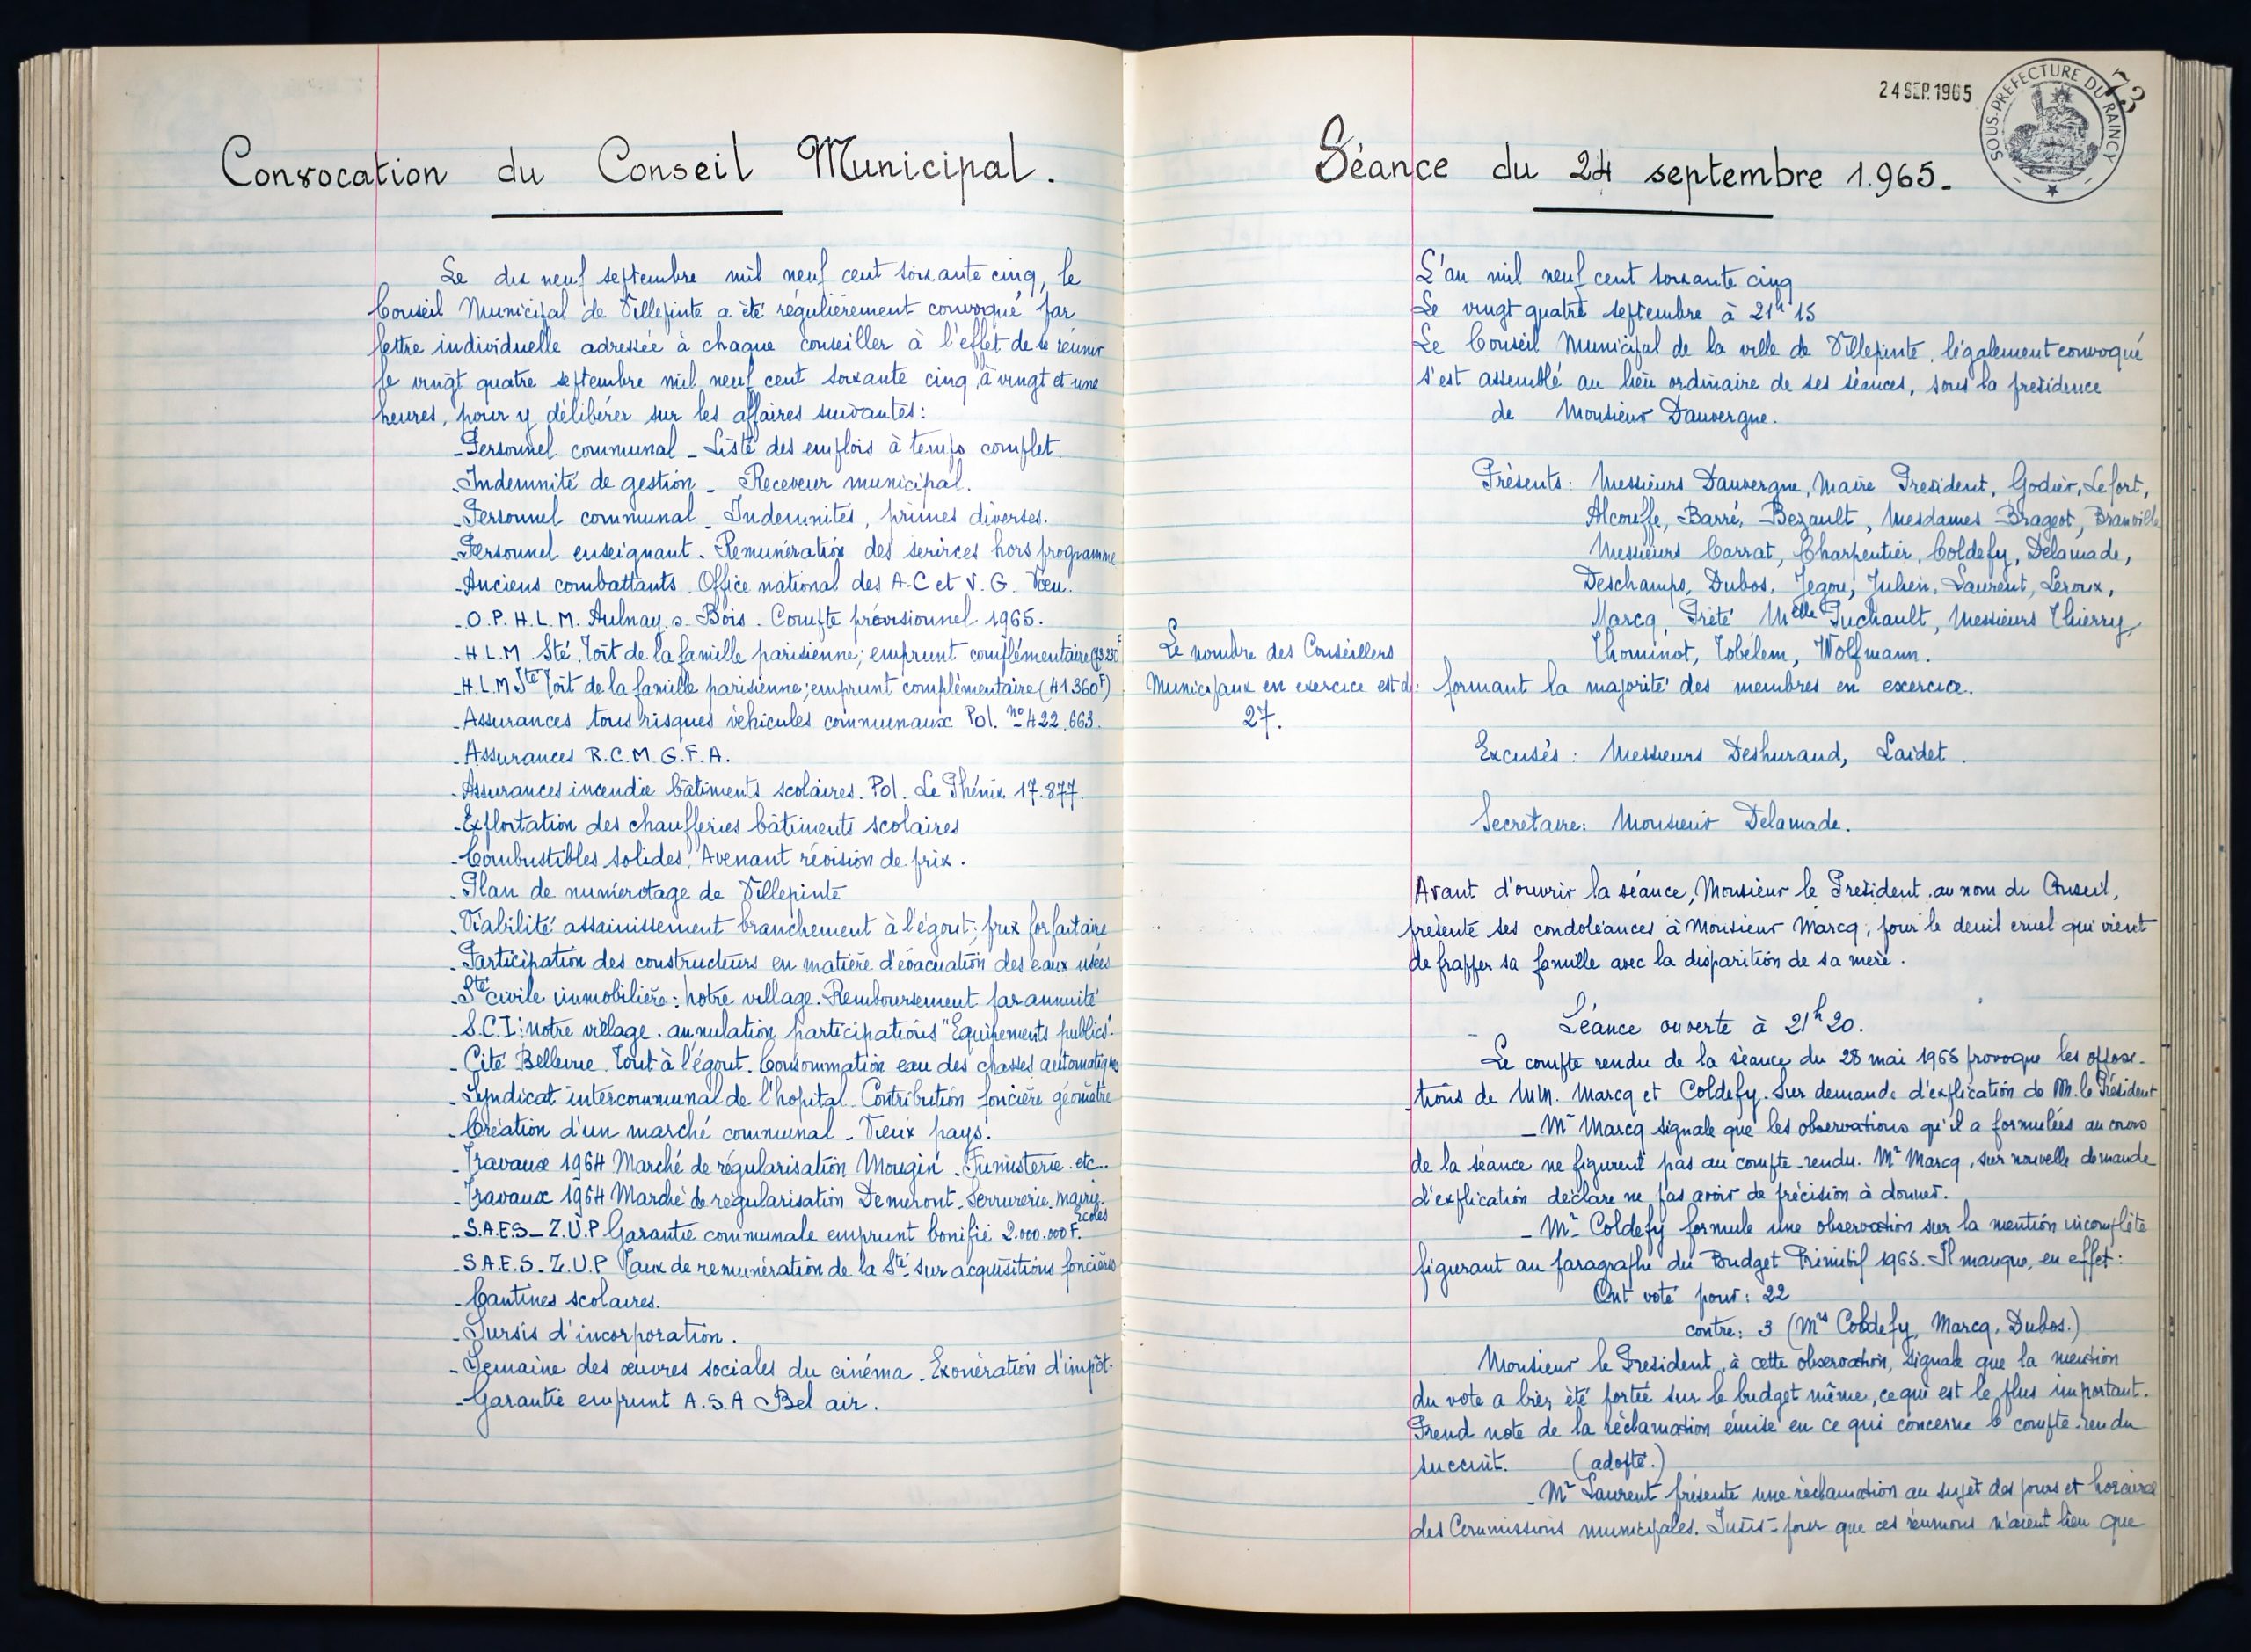 Convocation du Conseil Municipal.
Le dix neuf septembre mil neuf cent soixante cinq, le
Conseil Municipal de Villepinte a été régulièrement convoqué par
lettre individuelle adressée à chaque conseiller à l'effet de se réunir
le vingt quatre septembre mil neuf cent soixante cinq, à vingt et une
heures, pour y délibérer sur les affaires suivantes:
- Personnel communal - Liste des emplois à temps complet.
- Indemnité de gestion - Receveur municipal.
- Personnel communal - Indemnités, primes diverses.
- Personnel enseignant - Rémunération des services hors programme
- Anciens combattants. Office national des A.C et V.G. Vœu.
- O.P.H.L.M. Aulnay. s. Bois. Compte prévisionnel 1965.
- H.L.M Sté. Toit de la famille parisienne; emprunt complémentaire
- H.L.M Sté Toit de la famille parisienne; emprunt complémentaire (41360F)
- Assurances tous risques véhicules communaux Pol. nº 422.663.
- Assurances R.C.M.G.F.A.
- Assurances incendie bâtiments scolaires. Pol. Le Phénix 17.877.
- Exploitation des chaufferies bâtiments scolaires
- Combustibles solides. Avenant révision de prix.
- Plan de numérotage de Villepinte
- Viabilité assainissement branchement à l'égout; prix forfaitaire
- Participation des constructeurs en matière d'évacuation des eaux usées
- Sté civile immobilière: Notre village. Remboursement par annuité
- S.C.I: Notre village. annulation participations "Equipements publics".
- Cité Bellevue. Tout à l'égout. Consommation eau des chasses automatiques
- Syndicat intercommunal de l'hopital. Contribution foncière géomètre
- Création d'un marché communal - Vieux pays.
- Travaux 1964 Marché de régularisation Mougin. Fumisterie. etc..
- Travaux 1964 Marché de régularisation Demeront. Serrurerie. mairie.
Ecoles
- S.A.E.S - Z.U.P. Garantie communale emprunt bonifié 2.000.000 F.
- S.A.E.S. Z.U.P Taux de rémunération de la Sté. sur acquisitions foncières
- Cantines scolaires.
- Sursis d'incorporation.
- Semaine des œuvres sociales du cinéma. Exonération d'impôt.
- Garantie emprunt A.S.A Bel air.
24 SEP. 1965
SOUS-PREFECTURE DU RAINCY
73
Séance du 24 septembre 1.965.
L'an mil neuf cent soixante cinq
Le vingt quatre septembre à 21h 15
Le Conseil Municipal de la ville de Villepinte, légalement convoqué
s'est assemblé au lieu ordinaire de ses séances, sous la présidence
de Monsieur Dauvergne.
Présents: Messieurs Dauvergne, Maire Président, Godier, Lefort,
Alcouffe, Barré, Bezault, Mesdames Brageot, Branville
Messieurs Carrat, Charpentier, Coldefy, Delamade,
Deschamps, Dubos, Jegou, Julien, Laurent, Leroux,
Marcq, Prété Melle Puchault, Messieurs Thierry,
Thominot, Tobélem, Wolfmann.
formant la majorité des membres en exercice.
Le nombre des Conseillers
Municipaux en exercice est de:
27.
Excusés: Messieurs Deshuraud, Laidet.
Secrétaire: Monsieur Delamade.
Avant d'ouvrir la séance, Monsieur le Président, au nom du Conseil,
présente ses condoléances à Monsieur Marcq, pour le deuil cruel qui vient
de frapper sa famille avec la disparition de sa mère.
Séance ouverte à 21h 20.
Le compte rendu de la séance du 28 mai 1965 provoque les opposi-
tions de MM. Marcq et Coldefy. Sur demande d'explication de M. le Président
- Mr Marcq signale que les observations qu'il a formulées au cours
de la séance ne figurent pas au compte-rendu. Mr Marcq, sur nouvelle demande
d'explication déclare ne pas avoir de précision à donner.
- Mr Coldefy formule une observation sur la mention incomplète
figurant au paragraphe du Budget Primitif 1965. Il manque, en effet:
Ont voté pour: 22
contre: 3 (Mrs Coldefy, Marcq, Dubos.)
Monsieur le Président, à cette observation, signale que la mention
du vote a bien été portée sur le budget même, ce qui est le plus important.
Prend note de la réclamation émise en ce qui concerne le compte-rendu
succint. (adopté.)
- Mr Laurent présente une réclamation au sujet des jours et horaires
des Commissions municipales. que ces réunions n'aient lieu que